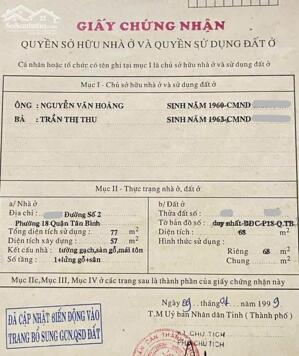 GIẤY CHỨNG NHẬN
QUYỀN SỞ HỮU NHÀ Ở VÀ QUYỀN SỬ DỤNG ĐẤT Ở
Cá nhân hoặc tổ chức có tên ghi tại mục I là chủ sở hữu nhà ở và sử dụng đất ở
Mục I - Chủ sở hữu nhà ở và sử dụng đất ở
ÔNG : NGUYỄN VĂN HOÀNG SINH NĂM 1960-CMND
BÀ : TRẦN THỊ THU SINH NĂM 1963-CMND
Mục II - Thực trạng nhà ở, đất ở
a/ Nhà ở
Địa chỉ : Đường Số 2
Phường 18 Quận Tân Bình
Tổng diện tích sử dụng : 77 m2
Diện tích xây dựng : 57 m2
Kết cấu nhà : tường gạch,sàn gỗ,mái tôn
Số tầng : 1+lửng gỗ+sân
b/ Đất ở
Thửa đất số :
Tờ bản đồ số : duy nhất-BĐC-P18-Q.TB
Diện tích : 68 m2
Hình thức sử dụng :
Riêng : 68 m2
Chung : m2
Mục IIc, Mục III, Mục IV ở các trang sau là thành phần của giấy chứng nhận này
Ngày 29 tháng 04 năm 1999
T.M Uỷ ban Nhân dân Tỉnh (Thành phố)
CHỦ TỊCH
ĐÃ CẬP NHẬT BIẾN ĐỘNG VÀO
TRANG BỔ SUNG GCN,QSD ĐẤT